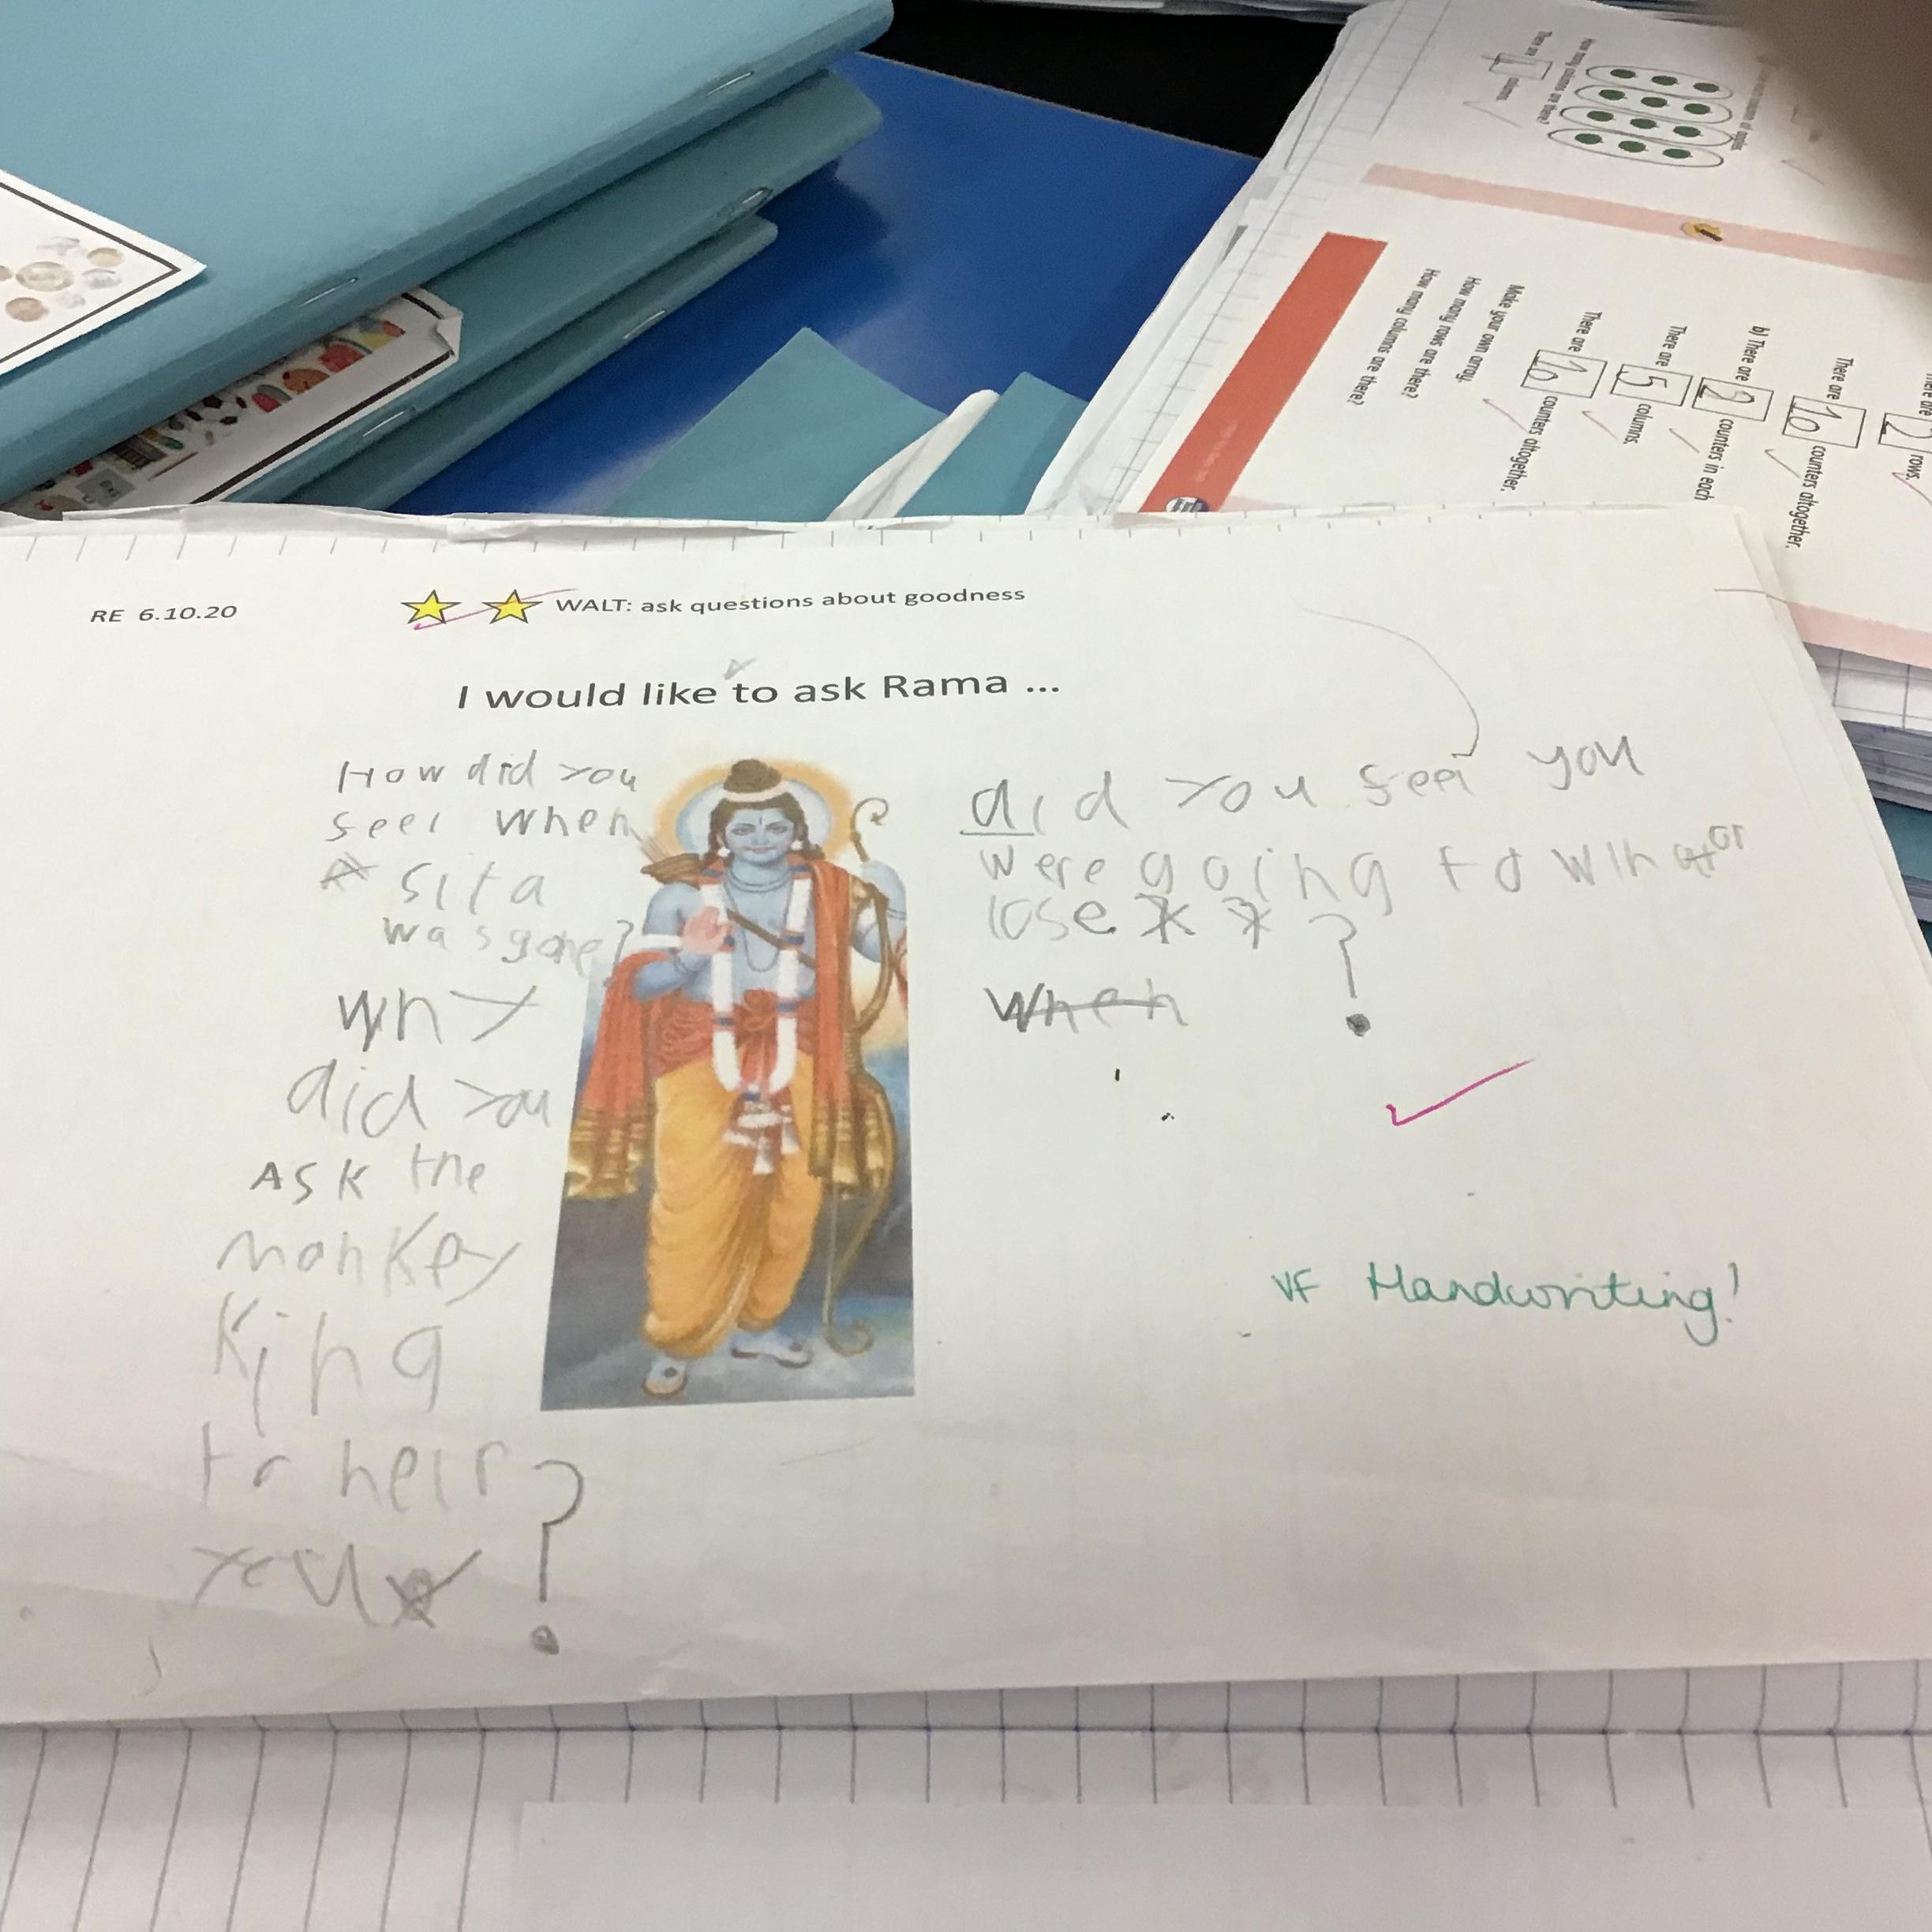 RE 6.10.20
WALT: ask questions about goodness
I would like to ask Rama ...
How did you
seel when
sita
was gone?
why
did you
ASK the
monkey
King
to help
you ?
did you seel you
were going to win or
lose ?
when
VF Handwriting!
How many columns are there?
There are
columns.
There are 2 rows.
There are 10 counters altogether.
b) There are 2 counters in each
There are 5 columns.
There are 10 counters altogether.
Make your own array.
How many rows are there?
How many columns are there?